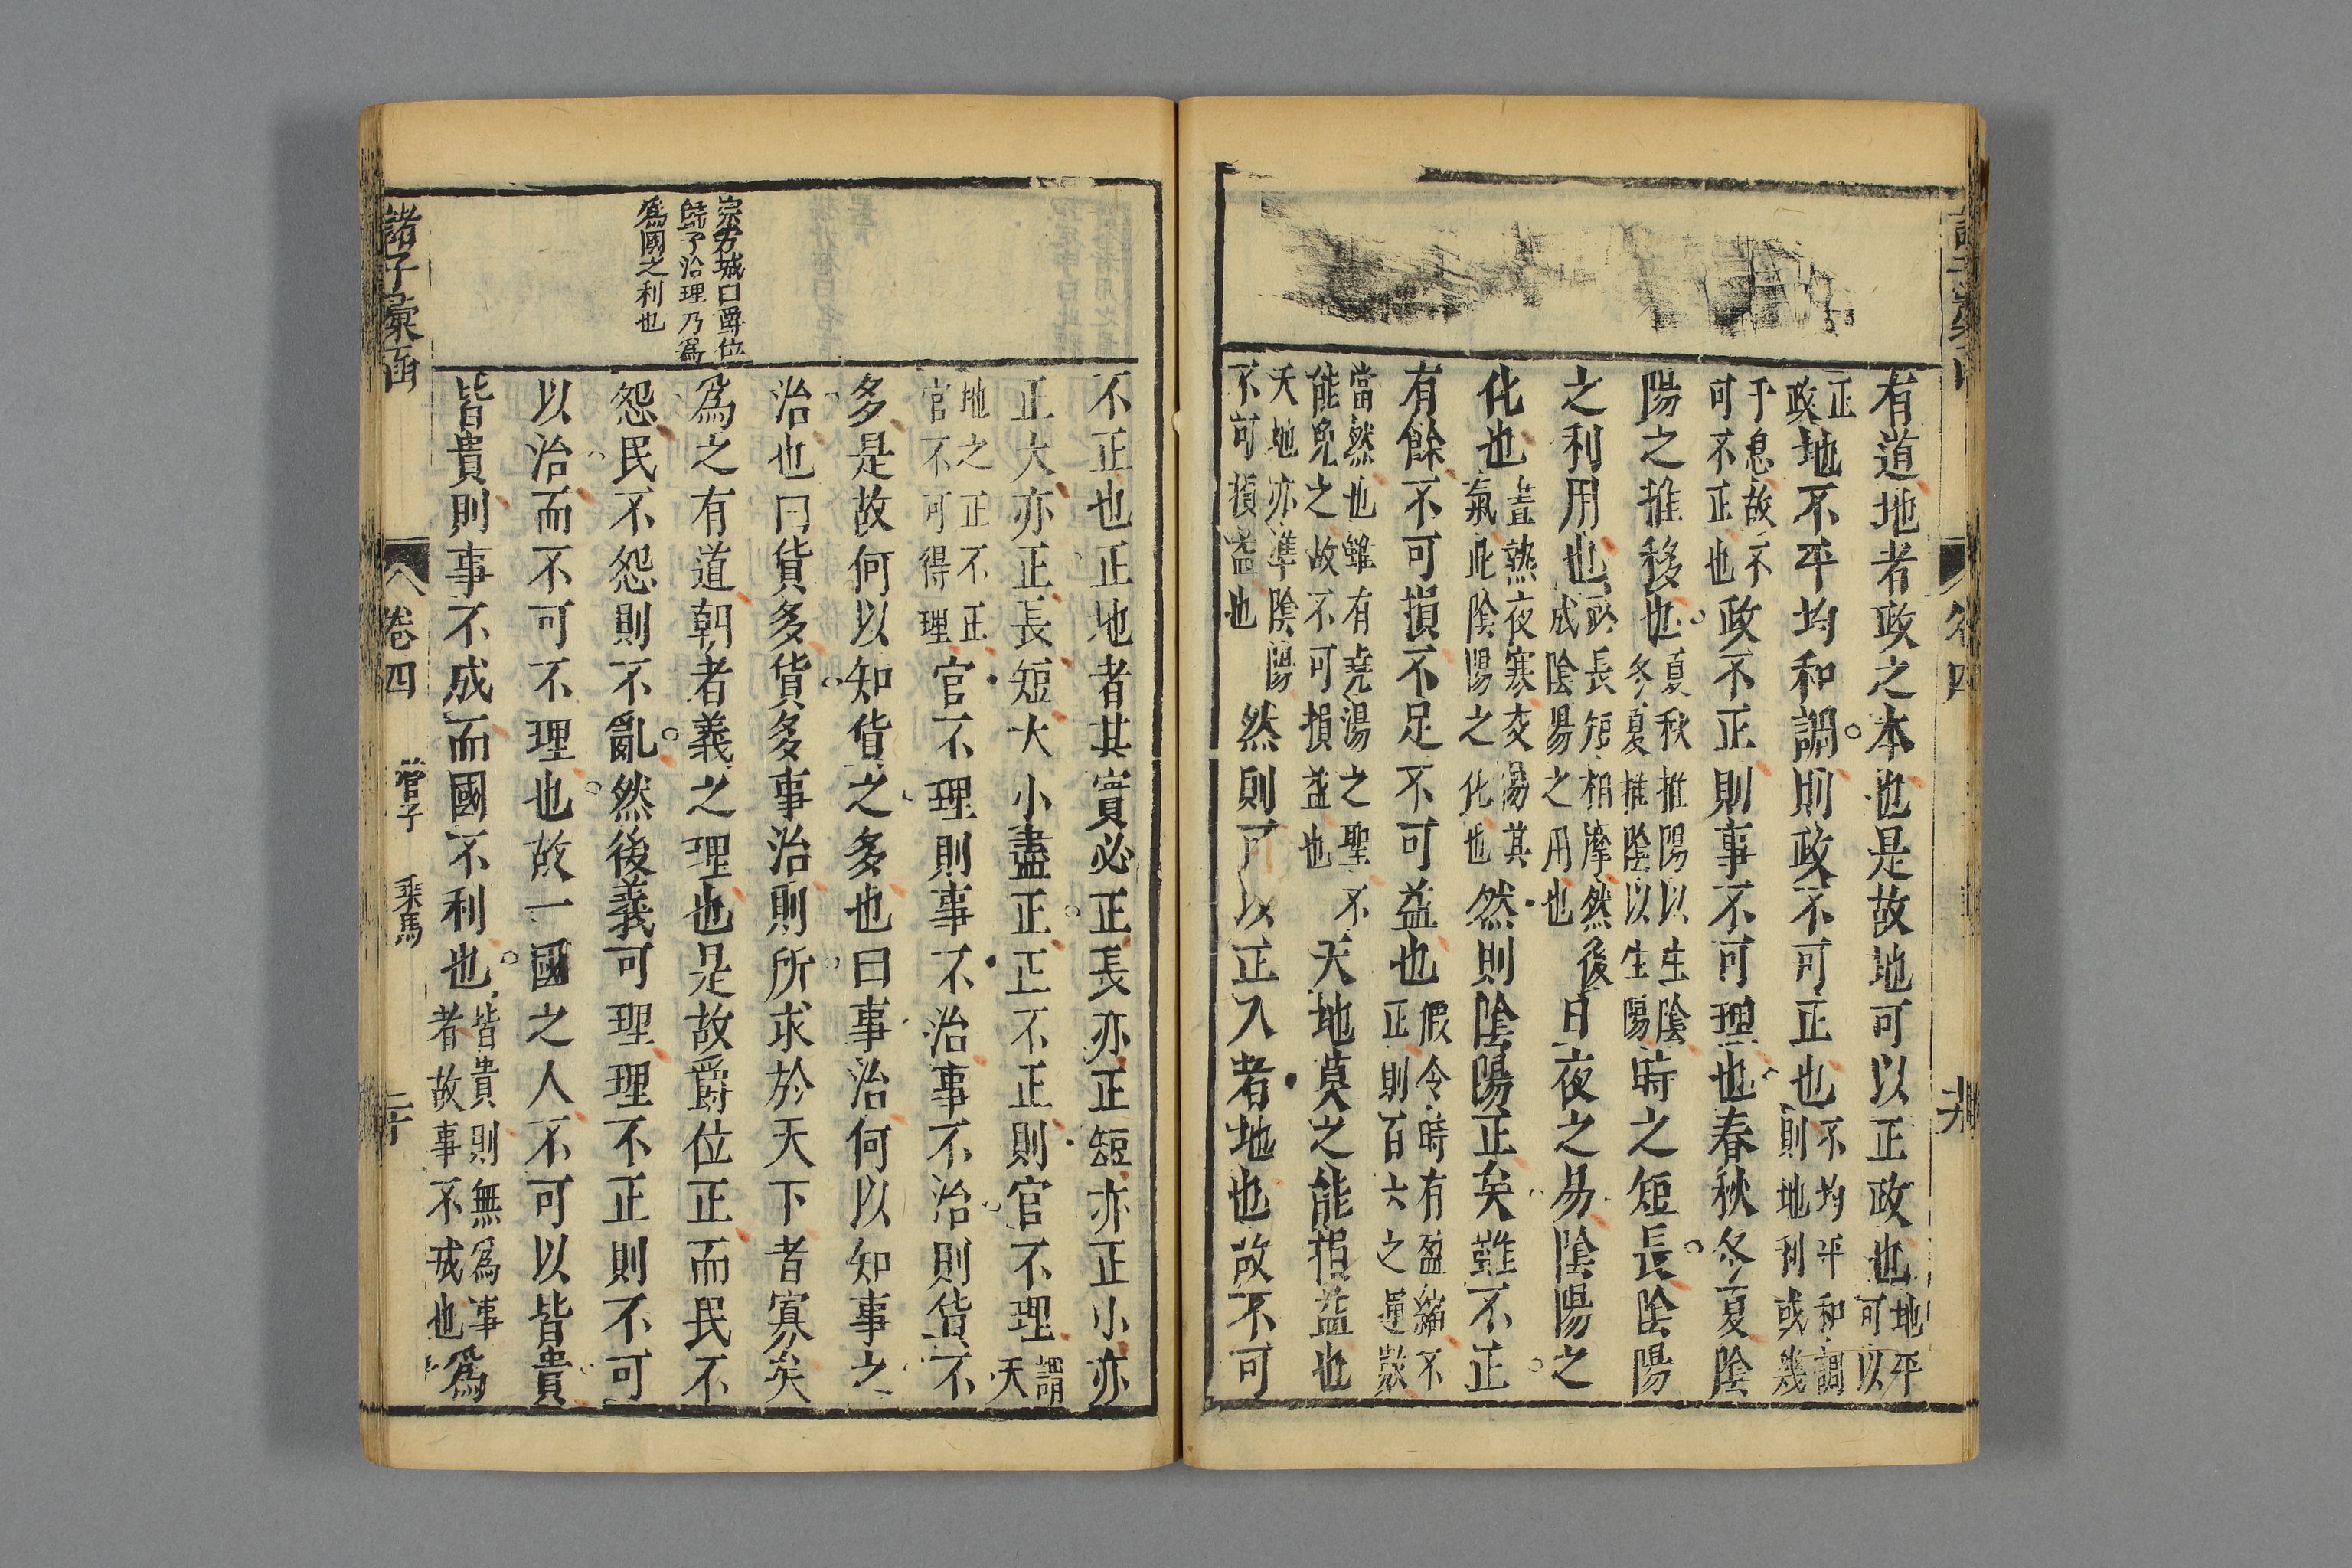 有道地者政之本也是故地可以正政也地平可以
正政地不平均和調則政不可正也不均平和調則地利或幾
于息故不可不正也政不正則事不可理也春秋冬夏陰
陽之推移也夏秋推陽以生陰冬夏推陰以生陽時之短長陰陽
之利用也必長短相摩然後成陰陽之用也日夜之易陰陽之
化也晝熱夜寒交易其氣此陰陽之化也然則陰陽正矣雖不正
有餘不可損不足不可益也假令時有盈縮不正則百六之運數
當然也雖有堯湯之聖不能免之故不可損益也天地莫之能損益也
天地亦準陰陽不可損益也然則可以正入者地也故不可
不正也正地者其實必正長亦正短亦正小亦
正大亦正長短大小盡正正不正則官不理謂天
地之正不正官不可得理官不理則事不治事不治則貨不
多是故何以知貨之多也曰事治何以知事之
治也曰貨多貨多事治則所求於天下者寡矣
爲之有道朝者義之理也是故爵位正而民不
怨民不怨則不亂然後義可理理不正則不可
以治而不可不理也故一國之人不可以皆貴
皆貴則事不成而國不利也皆貴則無爲事者故事不成也爲
宗方城曰爵位
歸于治理乃爲
爲國之利也
諸子彙函
卷四
管子
乘馬